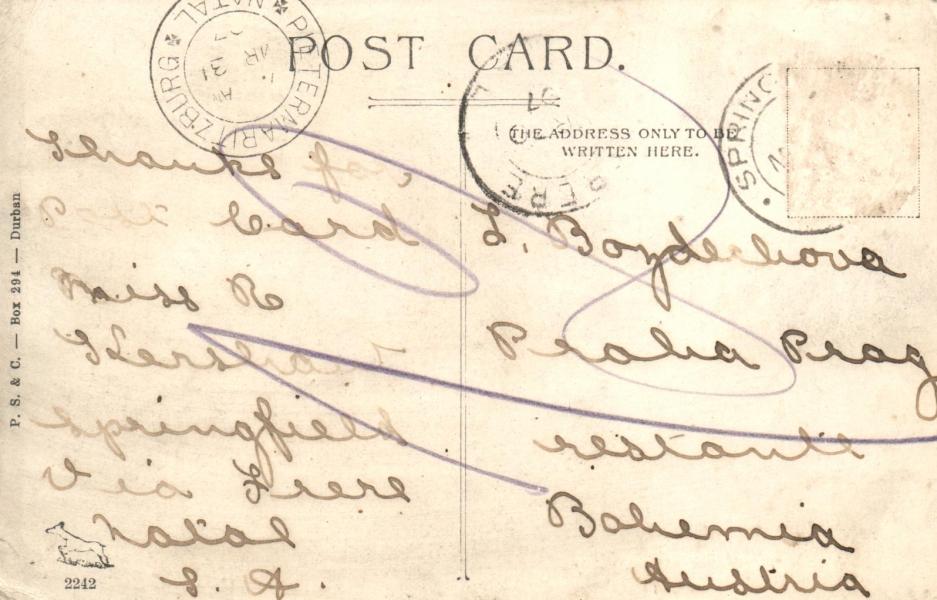 POST CARD.
THE ADDRESS ONLY TO BE
WRITTEN HERE.
PIETERMARITZBURG
NATAL
31
FRERE
SPRING
Thanks for
Post Card
Miss R
Kershaw
Springfield
Via Frere
Natal
S. A.
L. Bozdechova
Praha Prag
restante
Bohemia
Austria
P. S. & C. — Box 294 — Durban
2242